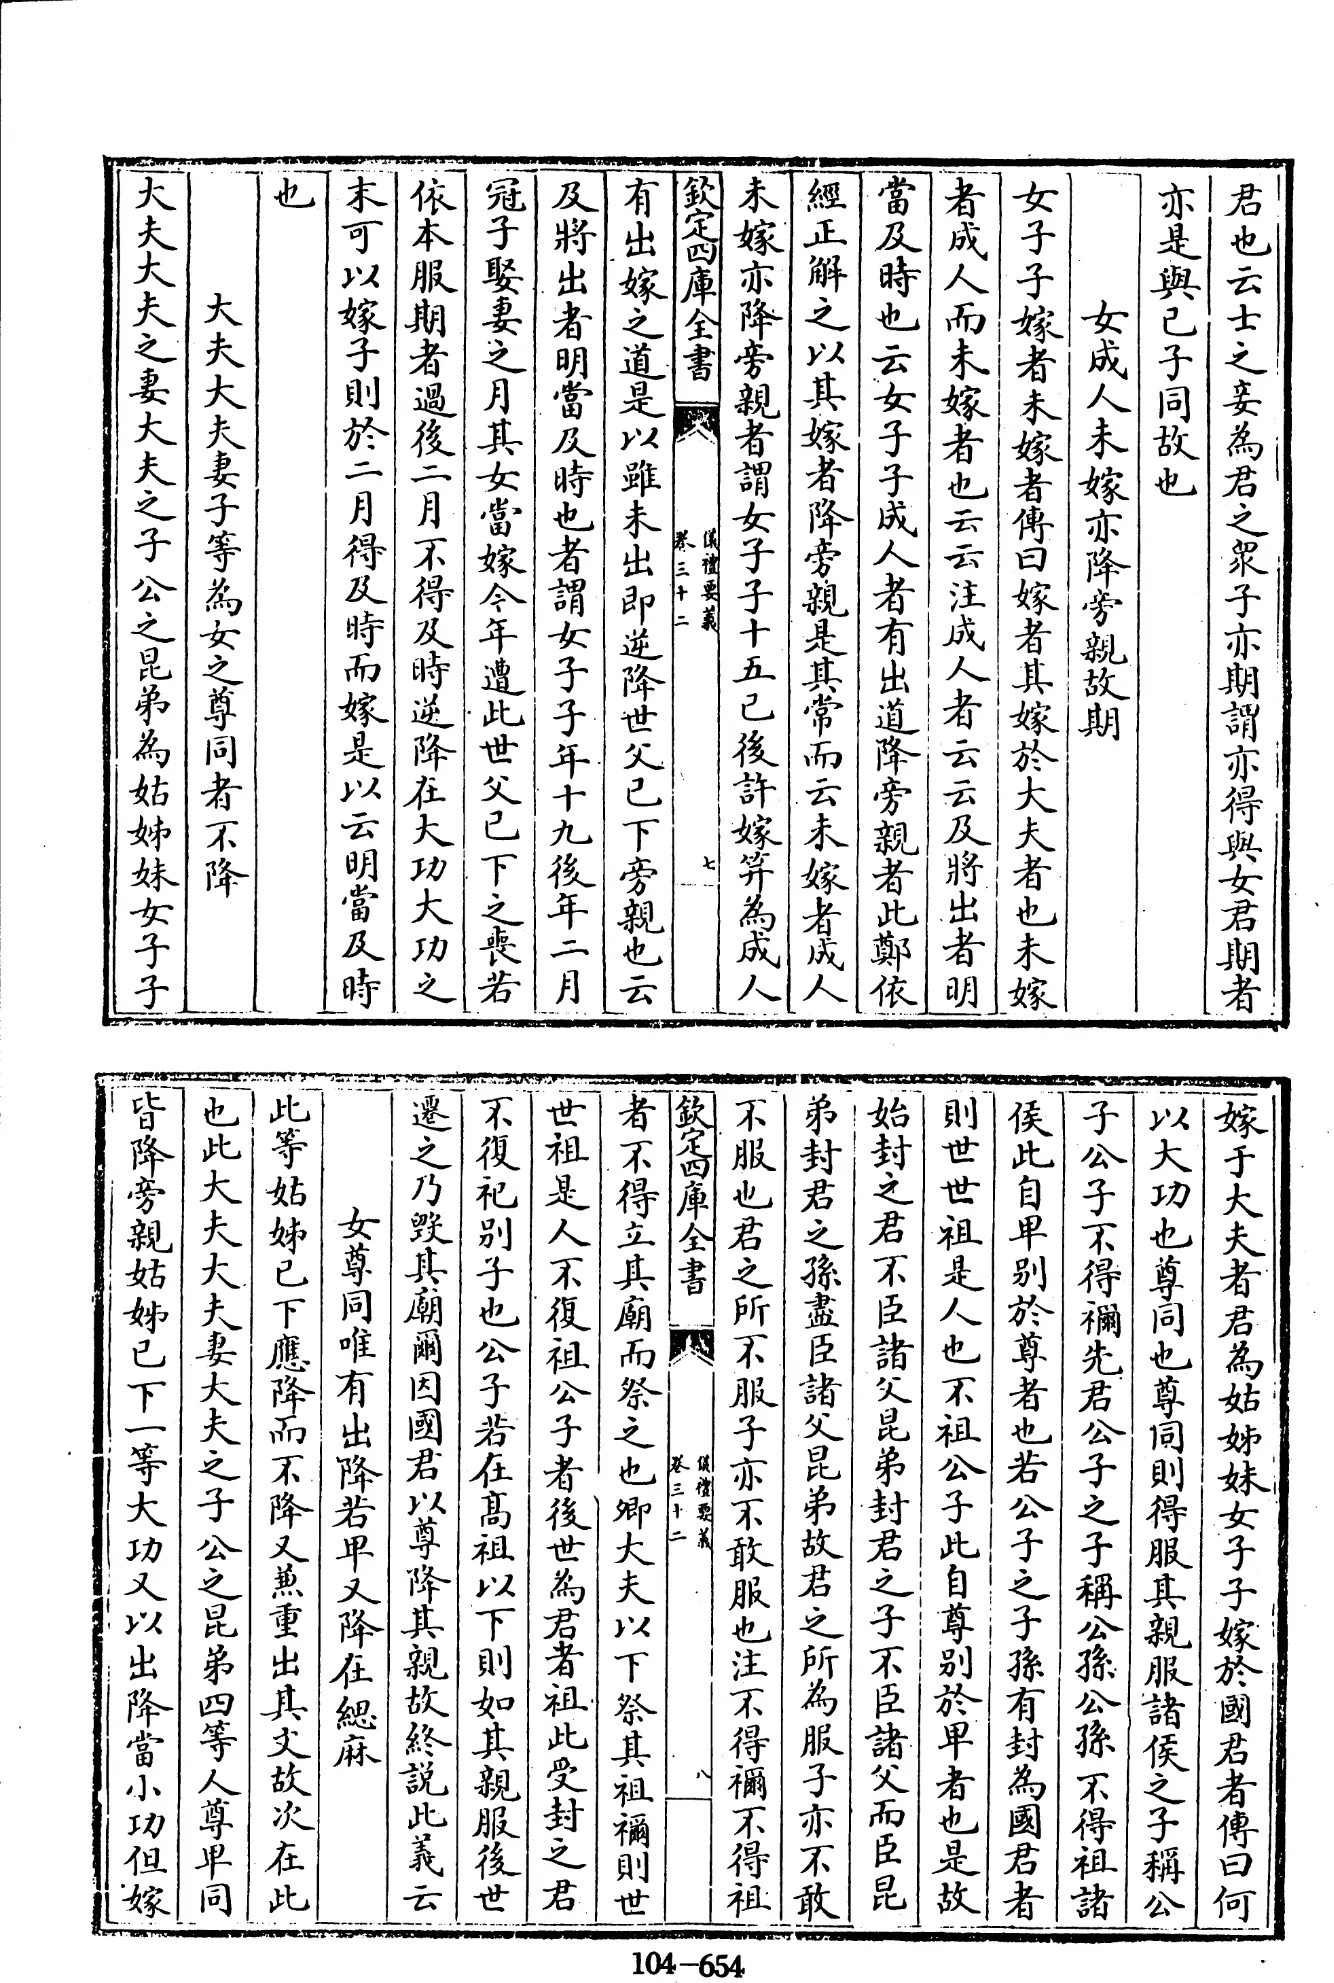 君也云士之妾為君之眾子亦期謂亦得與女君期者
亦是與己子同故也
女成人未嫁亦降旁親故期
女子子嫁者未嫁者傳曰嫁者其嫁於大夫者也未嫁
者成人而未嫁者也云云注成人者云云及將出者明
當及時也云女子子成人者有出道降旁親者此鄭依
經正解之以其嫁者降旁親是其常而云未嫁者成人
未嫁亦降旁親者謂女子子十五已後許嫁笄為成人
欽定四庫全書
儀禮要義
卷三十二
七
有出嫁之道是以雖未出即逆降世父已下旁親也云
及將出者明當及時也者謂女子子年十九後年二月
冠子娶妻之月其女當嫁今年遭此世父已下之喪若
依本服期者過後二月不得及時逆降在大功大功之
末可以嫁子則於二月得及時而嫁是以云明當及時
也
大夫大夫妻子等為女之尊同者不降
大夫大夫之妻大夫之子公之昆弟為姑姊妹女子子
嫁于大夫者君為姑姊妹女子子嫁於國君者傳曰何
以大功也尊同也尊同則得服其親服諸侯之子稱公
子公子不得禰先君公子之子稱公孫公孫不得祖諸
侯此自卑别於尊者也若公子之子孫有封為國君者
則世世祖是人也不祖公子此自尊别於卑者也是故
始封之君不臣諸父昆弟封君之子不臣諸父而臣昆
弟封君之孫盡臣諸父昆弟故君之所為服子亦不敢
不服也君之所不服子亦不敢服也注不得禰不得祖
欽定四庫全書
儀禮要義
卷三十二
八
者不得立其廟而祭之也卿大夫以下祭其祖禰則世
世祖是人不復祖公子者後世為君者祖此受封之君
不復祀别子也公子若在高祖以下則如其親服後世
遷之乃毀其廟爾因國君以尊降其親故終說此義云
女尊同唯有出降若卑又降在緦麻
此等姑姊已下應降而不降又兼重出其文故次在此
也此大夫大夫妻大夫之子公之昆弟四等人尊卑同
皆降旁親姑姊已下一等大功又以出降當小功但嫁
104-654